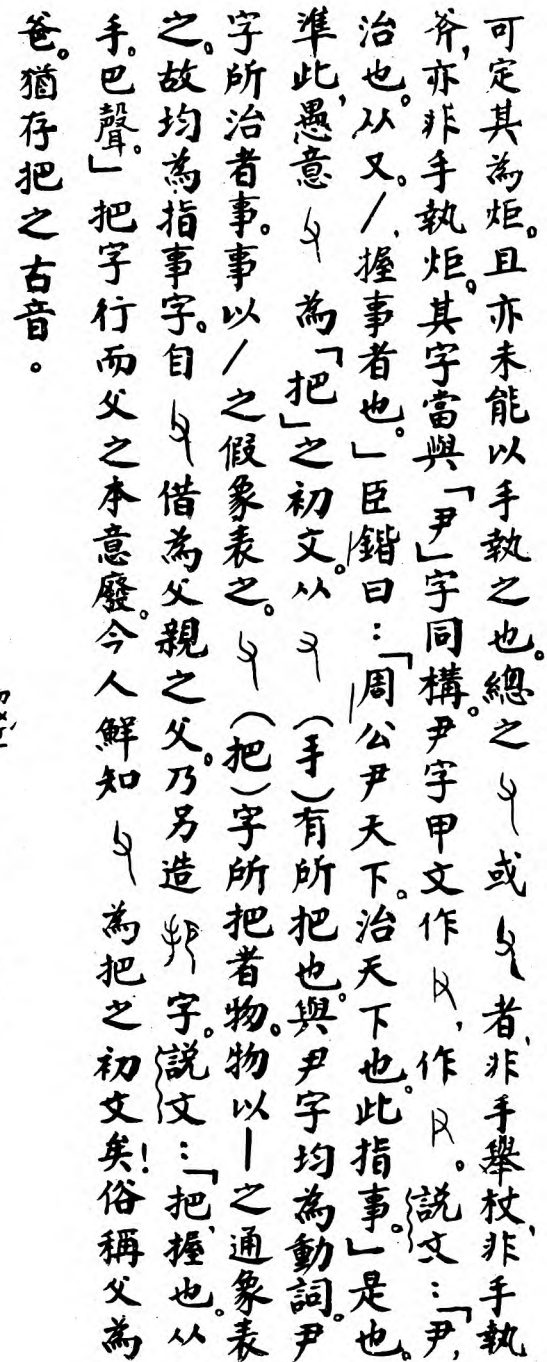 可定其為炬。且亦未能以手執之也。總之或者，非手舉杖，非手執
斧，亦非手執炬。其字當與「尹」字同構。尹字甲文作，作。說文：「尹，
治也。从又。丿，握事者也。」臣鍇曰：「周公尹天下。治天下也。此指事。」是也。
準此，愚意為「把」之初文。从（手）有所把也。與尹字均為動詞。尹
字所治者事。事以丿之假象表之。（把）字所把者物。物以丨之通象表
之。故均為指事字。自借為父親之父。乃另造字。說文：「把，握也。从
手。巴聲。」把字行而父之本意廢。今人鮮知為把之初文矣！俗稱父為
爸。猶存把之古音。